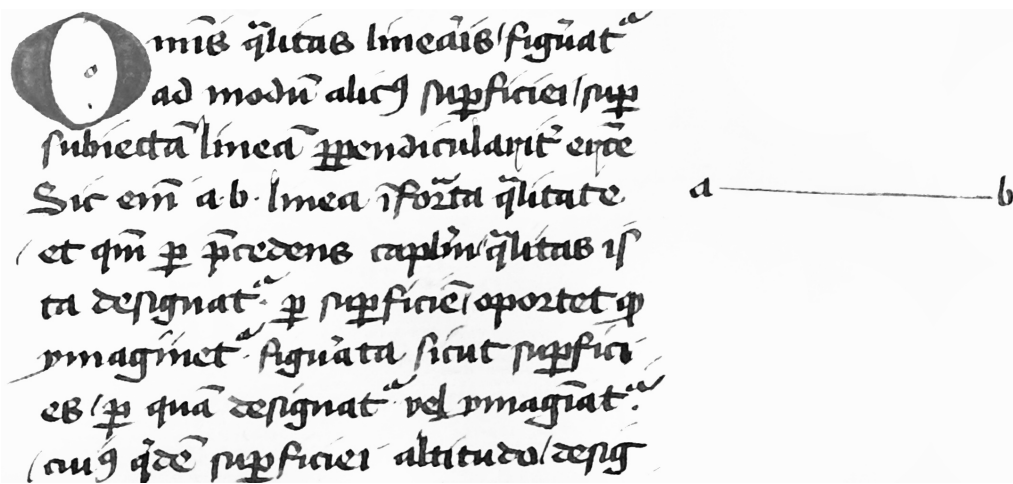 Omīs q̄litas lineaīs / figūat᷑
ad modū alicꝰ suꝑficiei / suꝑ
subiectā lineā ꝑpendiculariť erc̄te
Sic em̄ a·b· linea īfoꝛ̄ta q̄litate
/ et qm̄ ꝑ p̄cedens caplm̄ / q̄litas iſ
ta designat᷑ · ꝑ suꝑficiē / oportet ꝙ
ymaginet᷑ · figūata sicut suꝑfici
es / ꝑ quā designat᷑ vel ymagīat᷑ ·
/ cuiꝰ q̄dē suꝑficiei altitudo / desig
a b